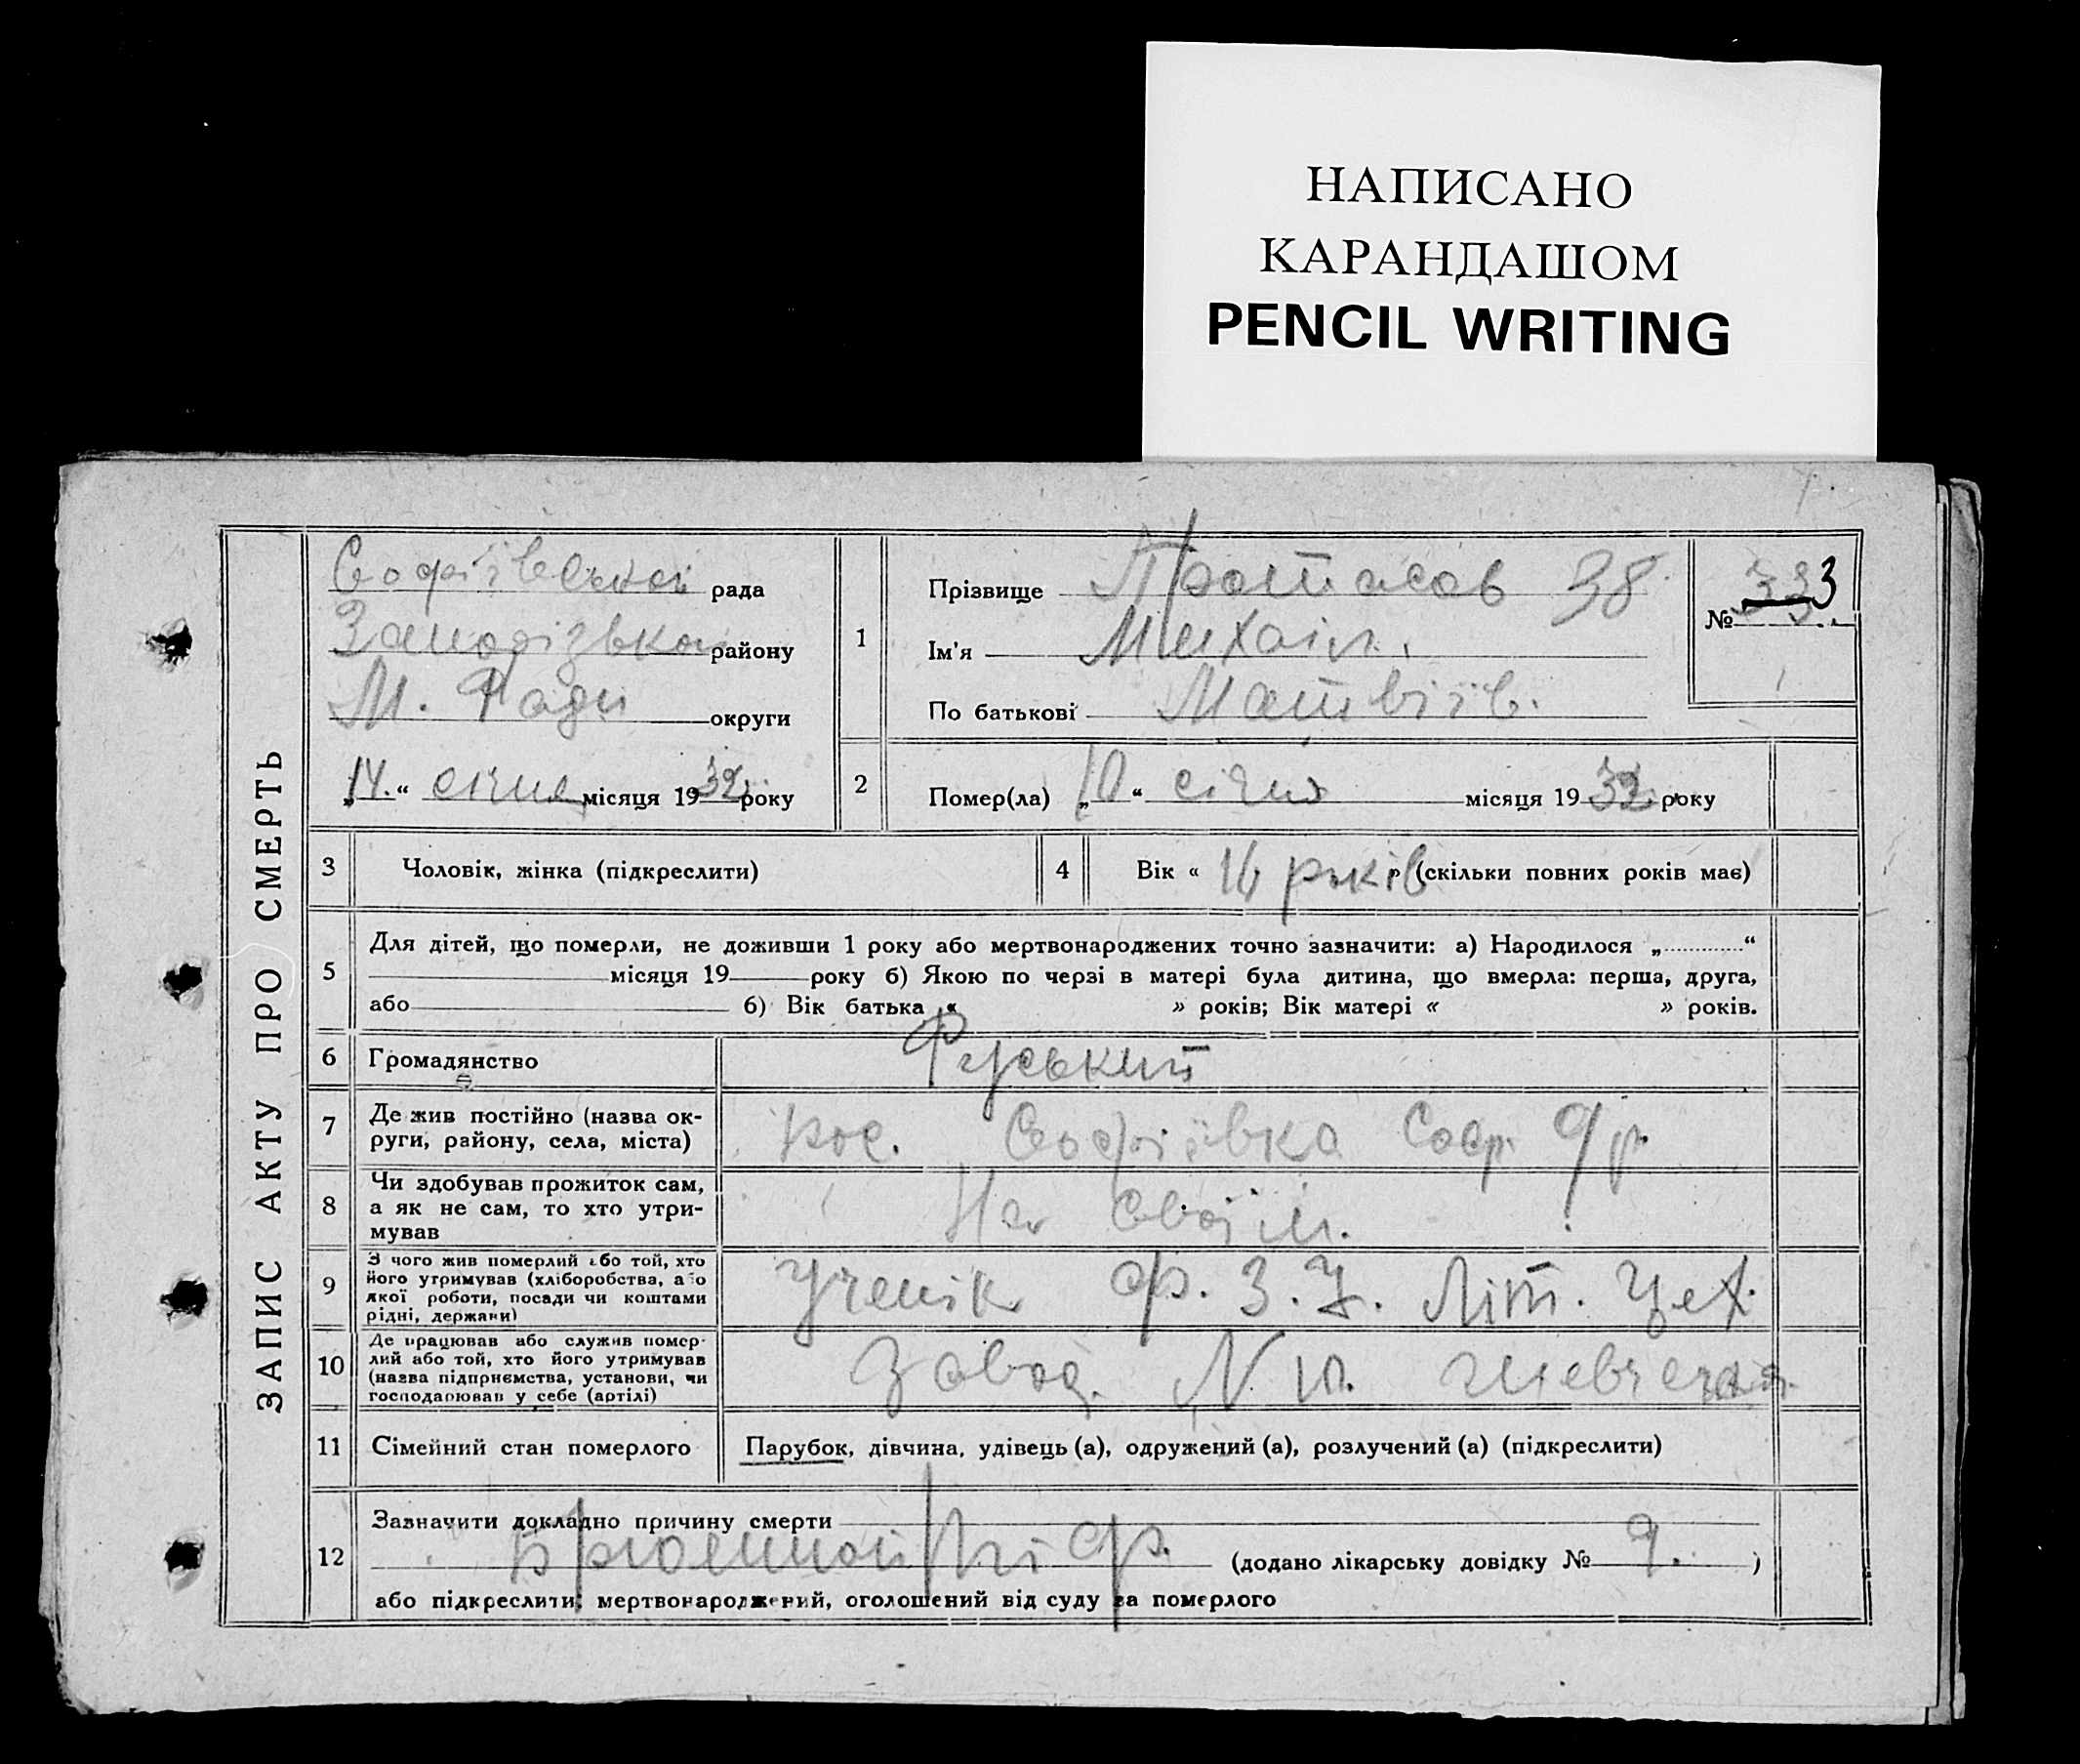 НАПИСАНО
КАРАНДАШОМ
PENCIL WRITING
ЗАПИС АКТУ ПРО СМЕРТЬ
Софіївской рада
району
М. Ради округи
„14.“ січня місяця 1932 року
1
Прізвище Протасов 38.
Ім'я Михаіл.
По батькові Матвіїв.
№ 3
2 Помер(ла) „10“ січня місяця 1932 року
3 Чоловік, жінка (підкреслити)
4 Вік « 16 років » (скільки повних років має)
5 Для дітей, що померли, не доживши 1 року або мертвонароджених точно зазначити: а) Народилося „............“
місяця 19 року б) Якою по черзі в матері була дитина, що вмерла: перша, друга,
або б) Вік батька « » років; Вік матері « » років.
6 Громадянство Руський
7 Де жив постійно (назва ок-
руги, району, села, міста) пос. Софіївка
8 Чи здобував прожиток сам,
а як не сам, то хто утри-
мував На своїм.
9 З чого жив померлий або той, хто
його утримував (хліборобства, або
якої роботи, посади чи коштами
рідні, держави) Ученік Ф. З. У. Літ. Цех.
10 Де працював або служив помер-
лий або той, хто його утримував
(назва підприємства, установи, чи
господарював у себе (артілі) Завод. N 10.
11 Сімейний стан померлого Парубок, дівчина, удівець (а), одружений (а), розлучений (а) (підкреслити)
12 Зазначити докладно причину смерти
Брюшной Тіф. (додано лікарську довідку № 9. )
або підкреслити: мертвонароджений, оголошений від суду за померлого